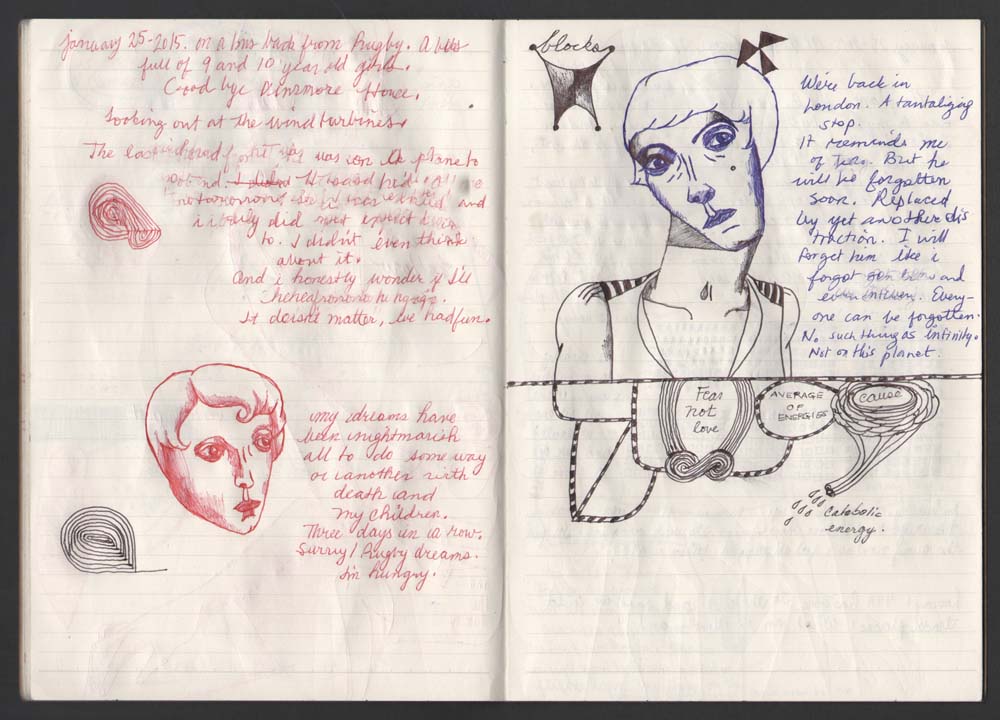 january 25-2015. on a bus back from Rugby. A bus
full of 9 and 10 year old girls.
Goodbye Dunsmore House.
Looking out at the wind turbines.
The last
was on the plane to
and
i really did not expect
to. I didn't even think
about it.
And i honestly wonder if I'll
It doesnt matter, we had fun.
my dreams have
been nightmarish
all to do some way
or another with
death and
my children.
Three days in a row.
Surry / Rugby dreams.
I'm hungry.
blocks
We're back in
London. A tantalizing
stop.
It reminds me
of But he
will be forgotten
soon. Replaced
by yet another dis
traction. I will
forget him like i
forgot and
even Every-
one can be forgotten.
No such thing as infinity.
Not on this planet.
Fear
not
love
AVERAGE
OF
ENERGIES
cause
Catabolic
energy.